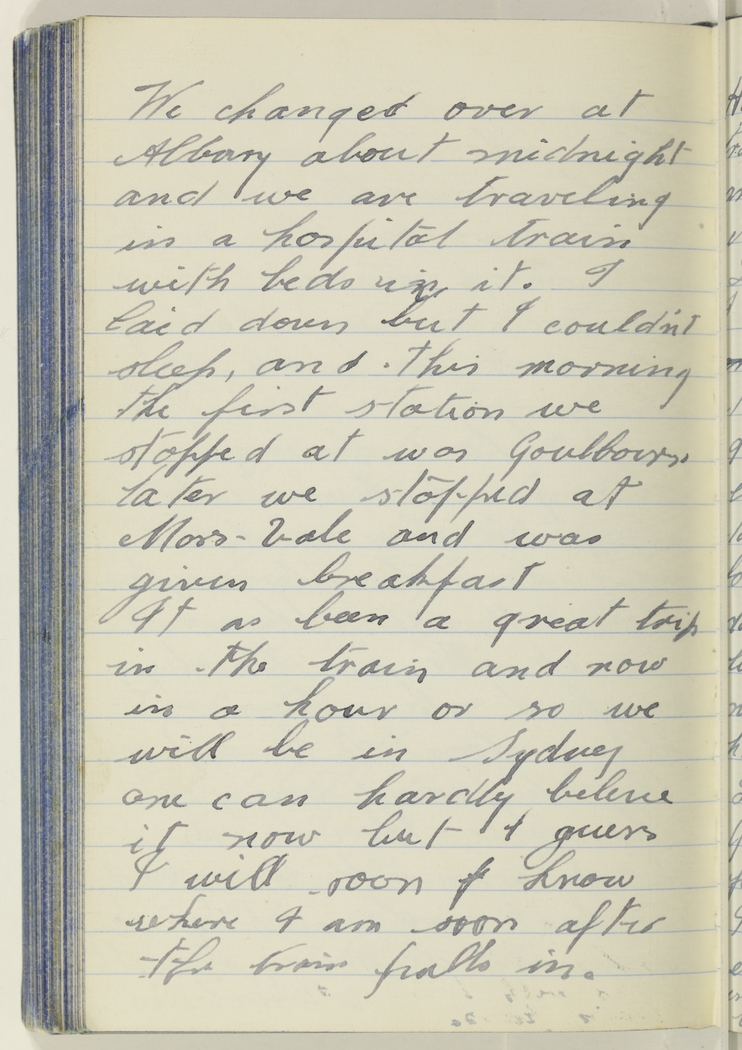 We changed over at
Albary about midnight
and we are traveling
in a hospital train
with beds in it. I
laid down but I couldn't
sleep, and. this morning
the first station we
stopped at was Goulbourn
later we stopped at
Moss-Vale and was
given breakfast
It as been a great trip
in the train and now
in a hour or so we
will be in Sydney
one can hardly beleive
it now but I guess
I will soon know
where I am soon after
the train pulls in.